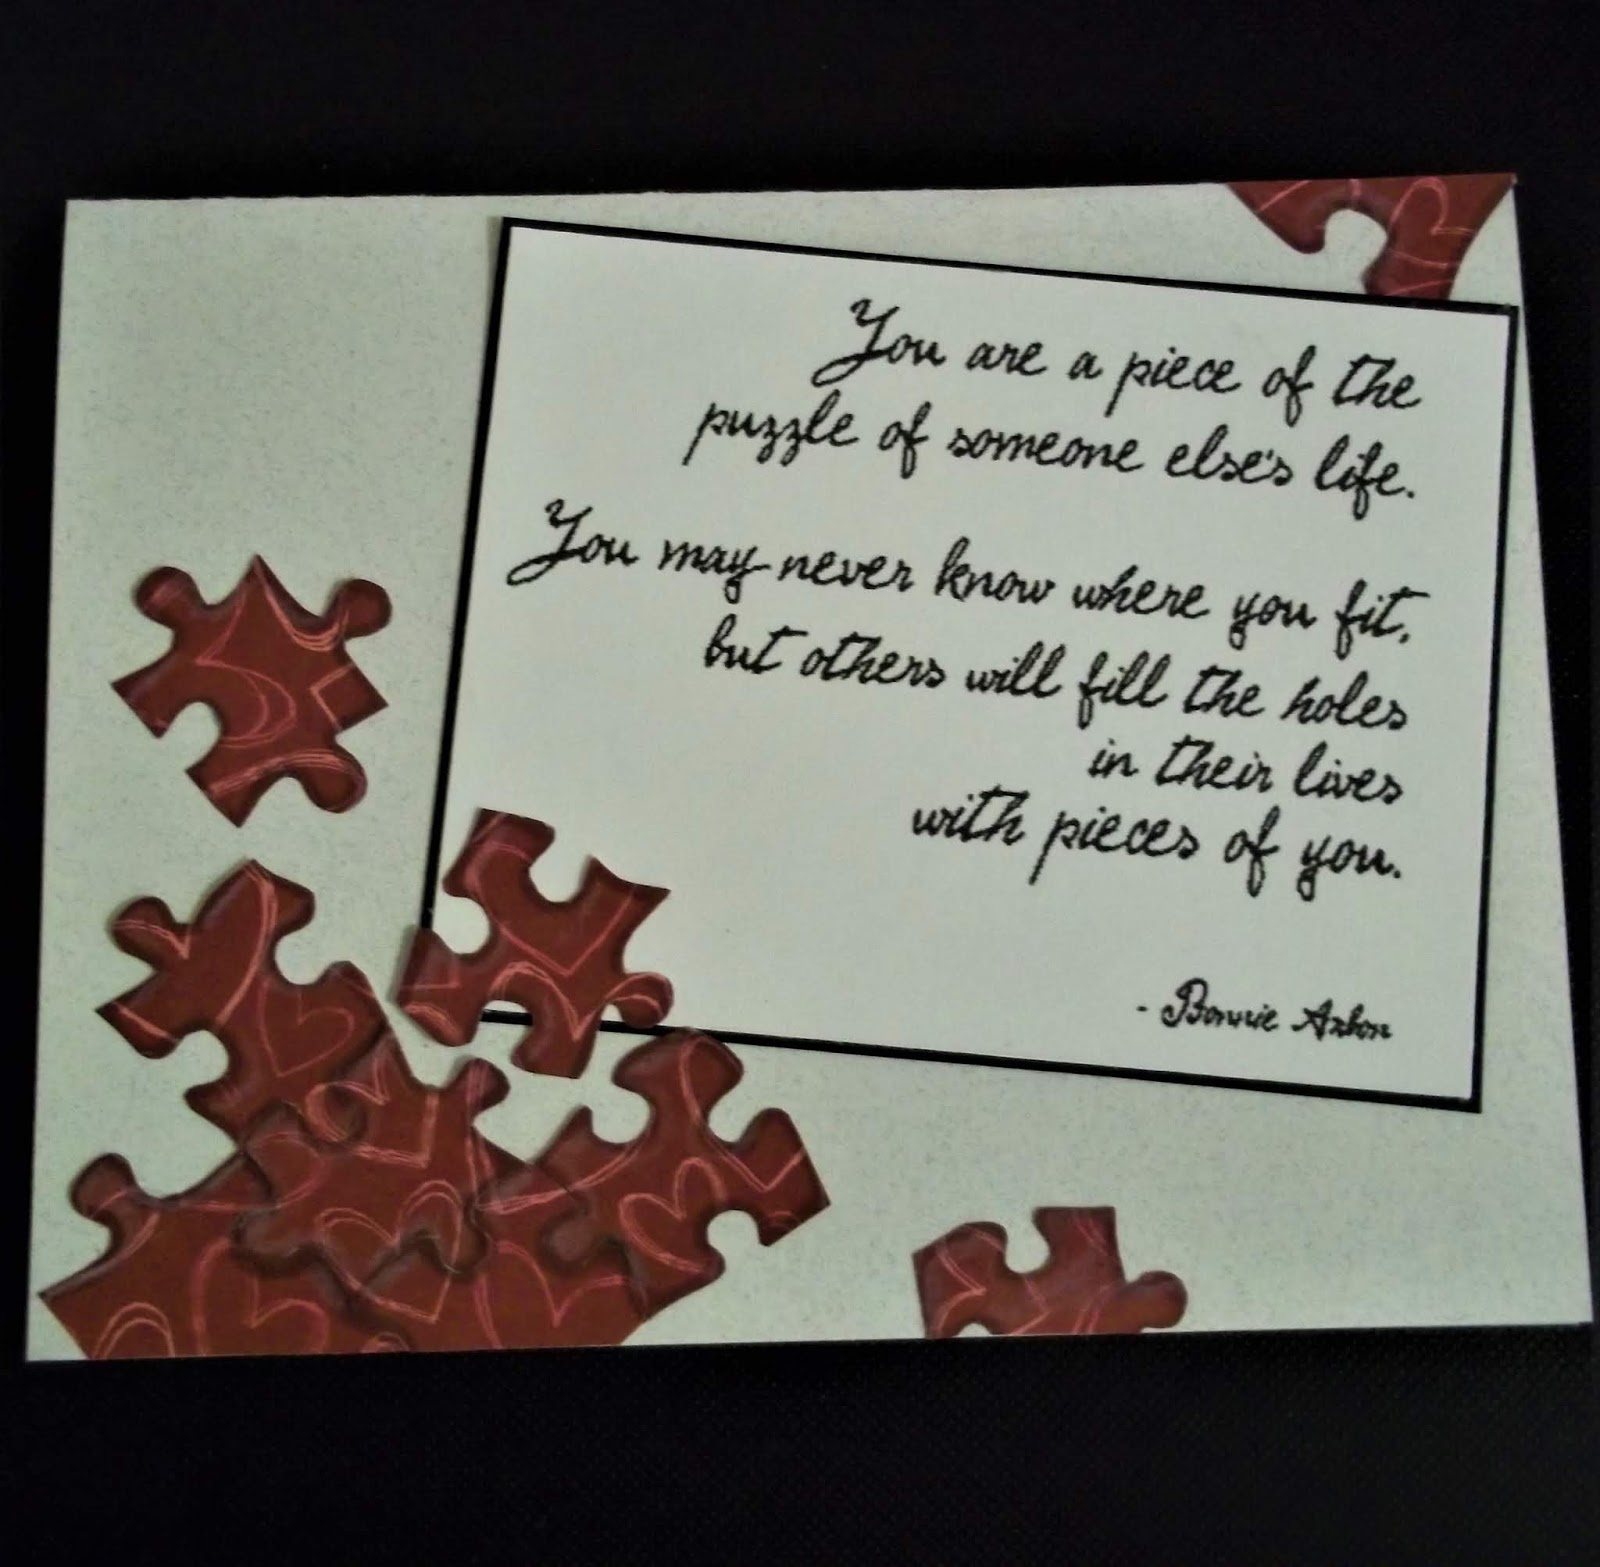 You are a piece of the
puzzle of someone else's life.
You may never know where you fit,
but others will fill the holes
in their lives
with pieces of you.
- Bonnie Arbon